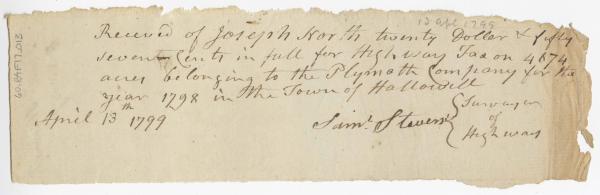 13 apl 1799
Received of Joseph North twenty Dollar & fifty
seven Cents in full for High way Tax on 4674
acres belonging to the Plymoth Company for the
year 1798 in the Town of Hallowell
April 13th 1799
Saml Stevens { Surveyor
of
High ways